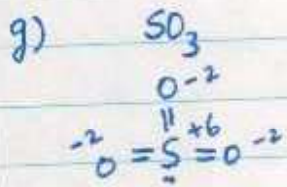 g) SO₃
O⁻²
||
⁻²O = S⁺⁶ = O⁻²